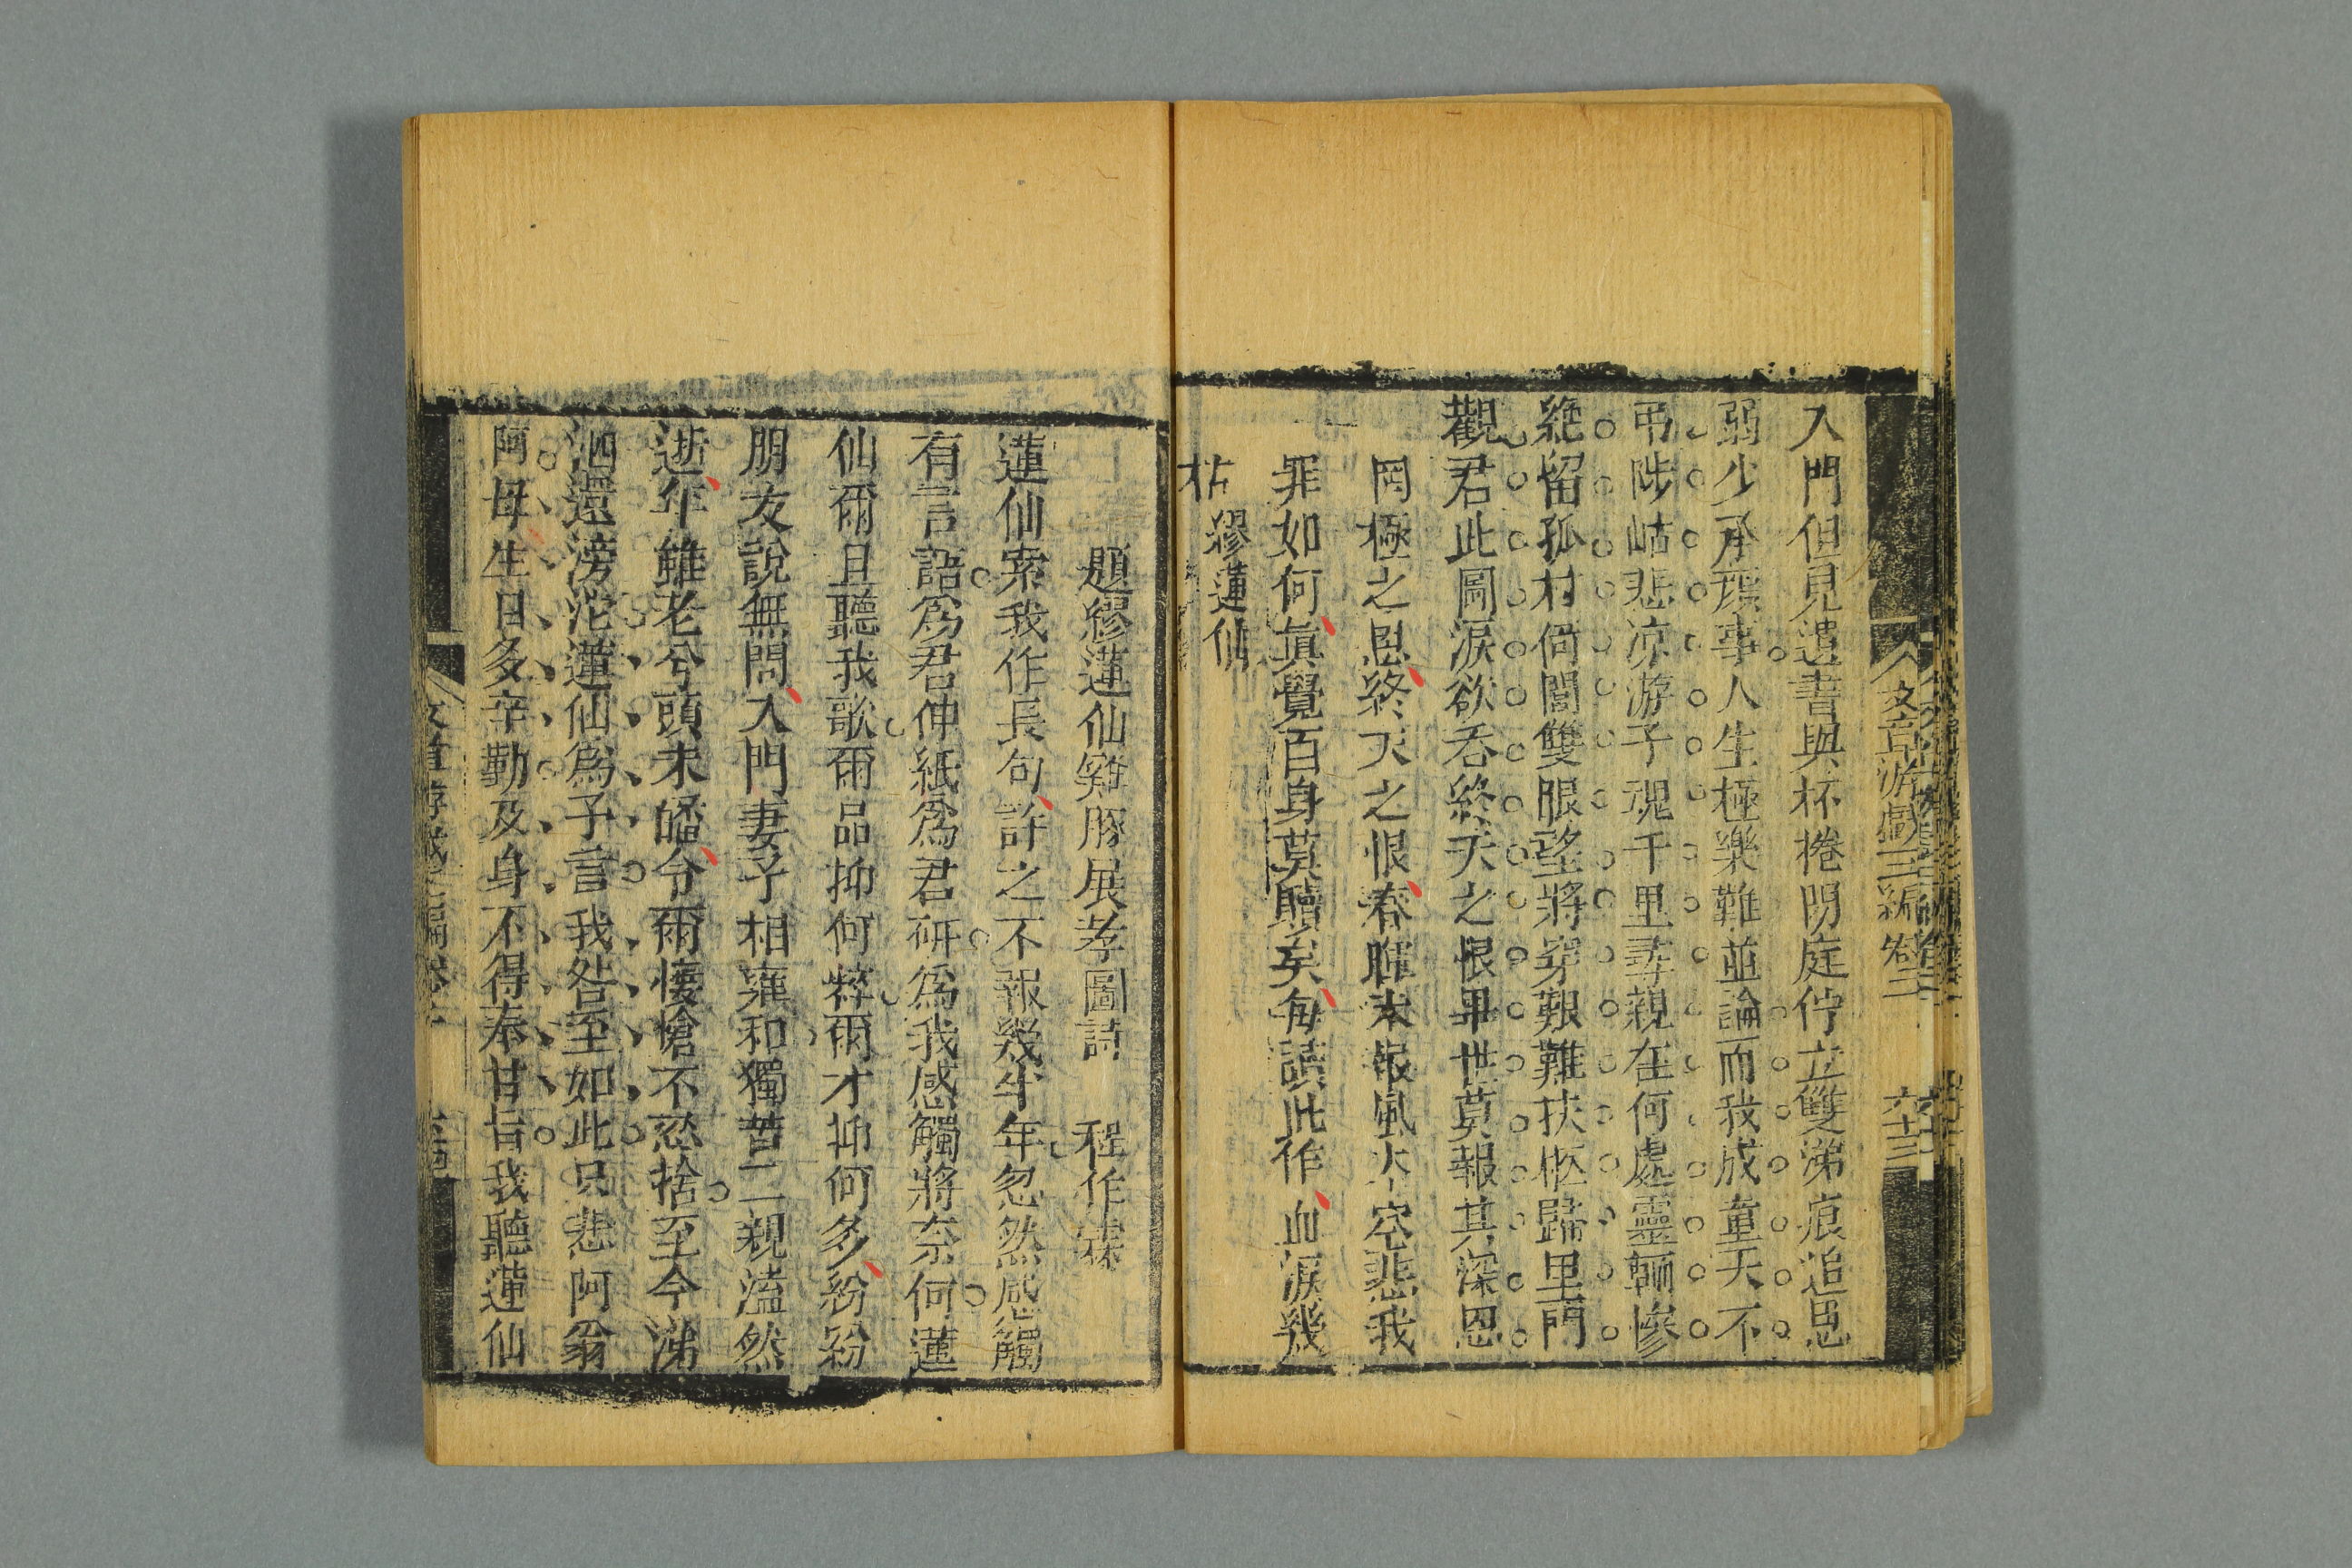 文章游戲三編卷二 六十三
入門但見遺書與杯棬閉庭佇立雙涕痕追思
弱少承環事人生極樂難並論而我成童天不
弔陟岵悲凉游子魂千里尋親在何處靈輀慘
絶留孤村倚閭雙眼望將穿艱難扶柩歸里門
觀君此圖淚欲吞終天之恨畢世莫報其深恩
罔極之恩終天之恨春暉未報風木空悲我
罪如何眞覺百身莫贖矣每讀此作血淚幾
枯 繆蓮仙
題繆蓮仙雞豚展孝圖詩 程作霖
蓮仙索我作長句許之不報幾半年忽然感觸
有言語爲君伸紙爲君硏爲我感觸將奈何蓮
仙爾且聽我歌爾品抑何粹爾才抑何多紛紛
朋友說無間入門妻子相雍和獨昔二親溘然
逝年雖老兮頭未皤令爾悽愴不忍捨至今涕
泗還滂沱蓮仙爲予言我咎至如此只悲阿翁
阿母生日多辛勤及身不得奉甘旨我聽蓮仙